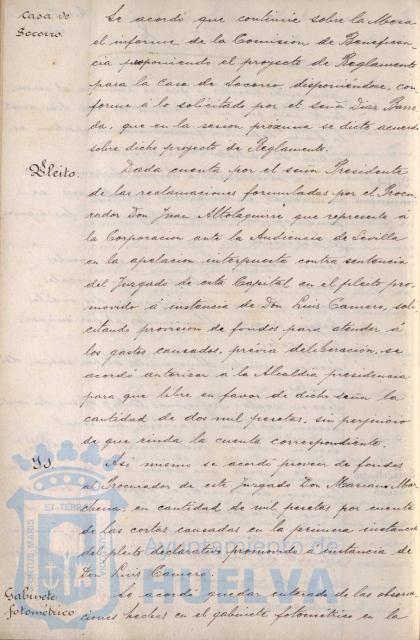 Casa de
Socorro.
Se acordó que continúe sobre la Mesa
el informe de la Comision de Beneficen-
cia proponiendo el proyecto de Reglamento
para la Casa de Socorro, disponiéndose, con-
forme á lo solicitado por el señor Diaz Barre-
da, que en la sesion próxima se dicte acuerdo
sobre dicho proyecto de Reglamento.
Pleito.
Dada cuenta por el señor Presidente
de las reclamaciones formuladas por el Procu-
rador Don Juan Altolaguirre que representa á
la Corporacion ante la Audiencia de Sevilla
en la apelacion interpuesta contra sentencia
del Juzgado de esta Capital en el pleito pro-
movido á instancia de Don Luis Camero, soli-
citando provision de fondos para atender á
los gastos causados, prévia deliberación, se
acordó autorizar á la Alcaldía presidencia
para que libre en favor de dicho señor la
cantidad de dos mil pesetas, sin perjuicio
de que rinda la cuenta correspondiente.
Id
Asi mismo se acordó proveer de fondos
al Procurador de este Juzgado Don Mariano Mar-
chena, en cantidad de mil pesetas por cuenta
de las costas causadas en la primera instancia
del pleito declarativo promovido á instancia de
Don Luis Camero.
Gabinete
fotométrico
Se acordó quedar enterado de las observa-
ciones hechas en el gabinete fotométrico en la
PORTUS MARIS
ET TERRAE
Ayuntamiento de
HUELVA